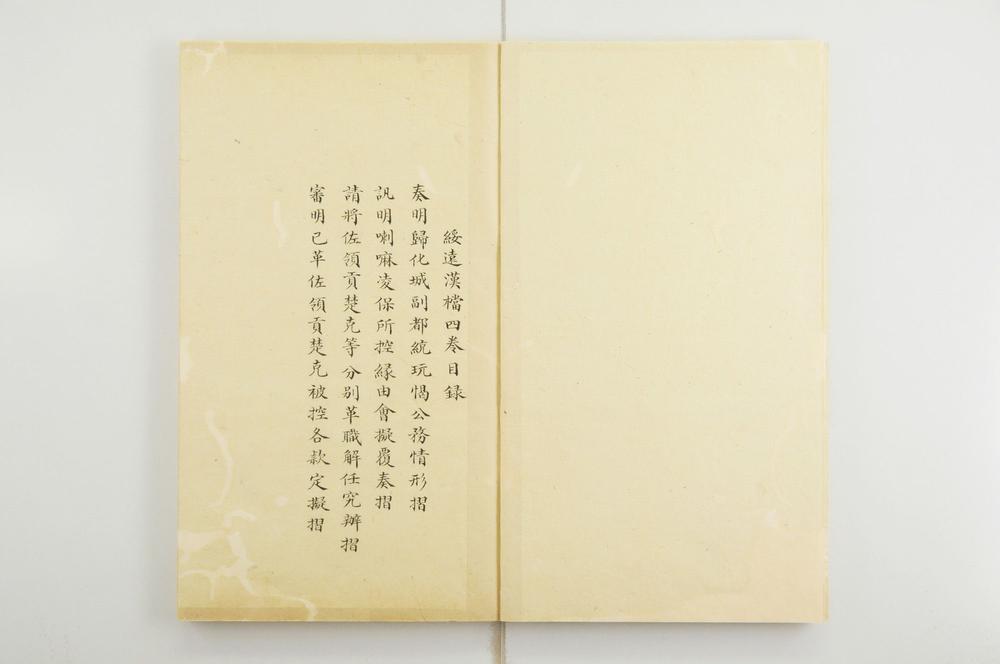 綏遠漢檔四卷目録
奏明歸化城副都統玩愒公務情形摺
訊明喇嘛凌保所控緣由會擬覆奏摺
請將佐領貢楚克等分別革職解任究辦摺
審明已革佐領貢楚克被控各款定擬摺